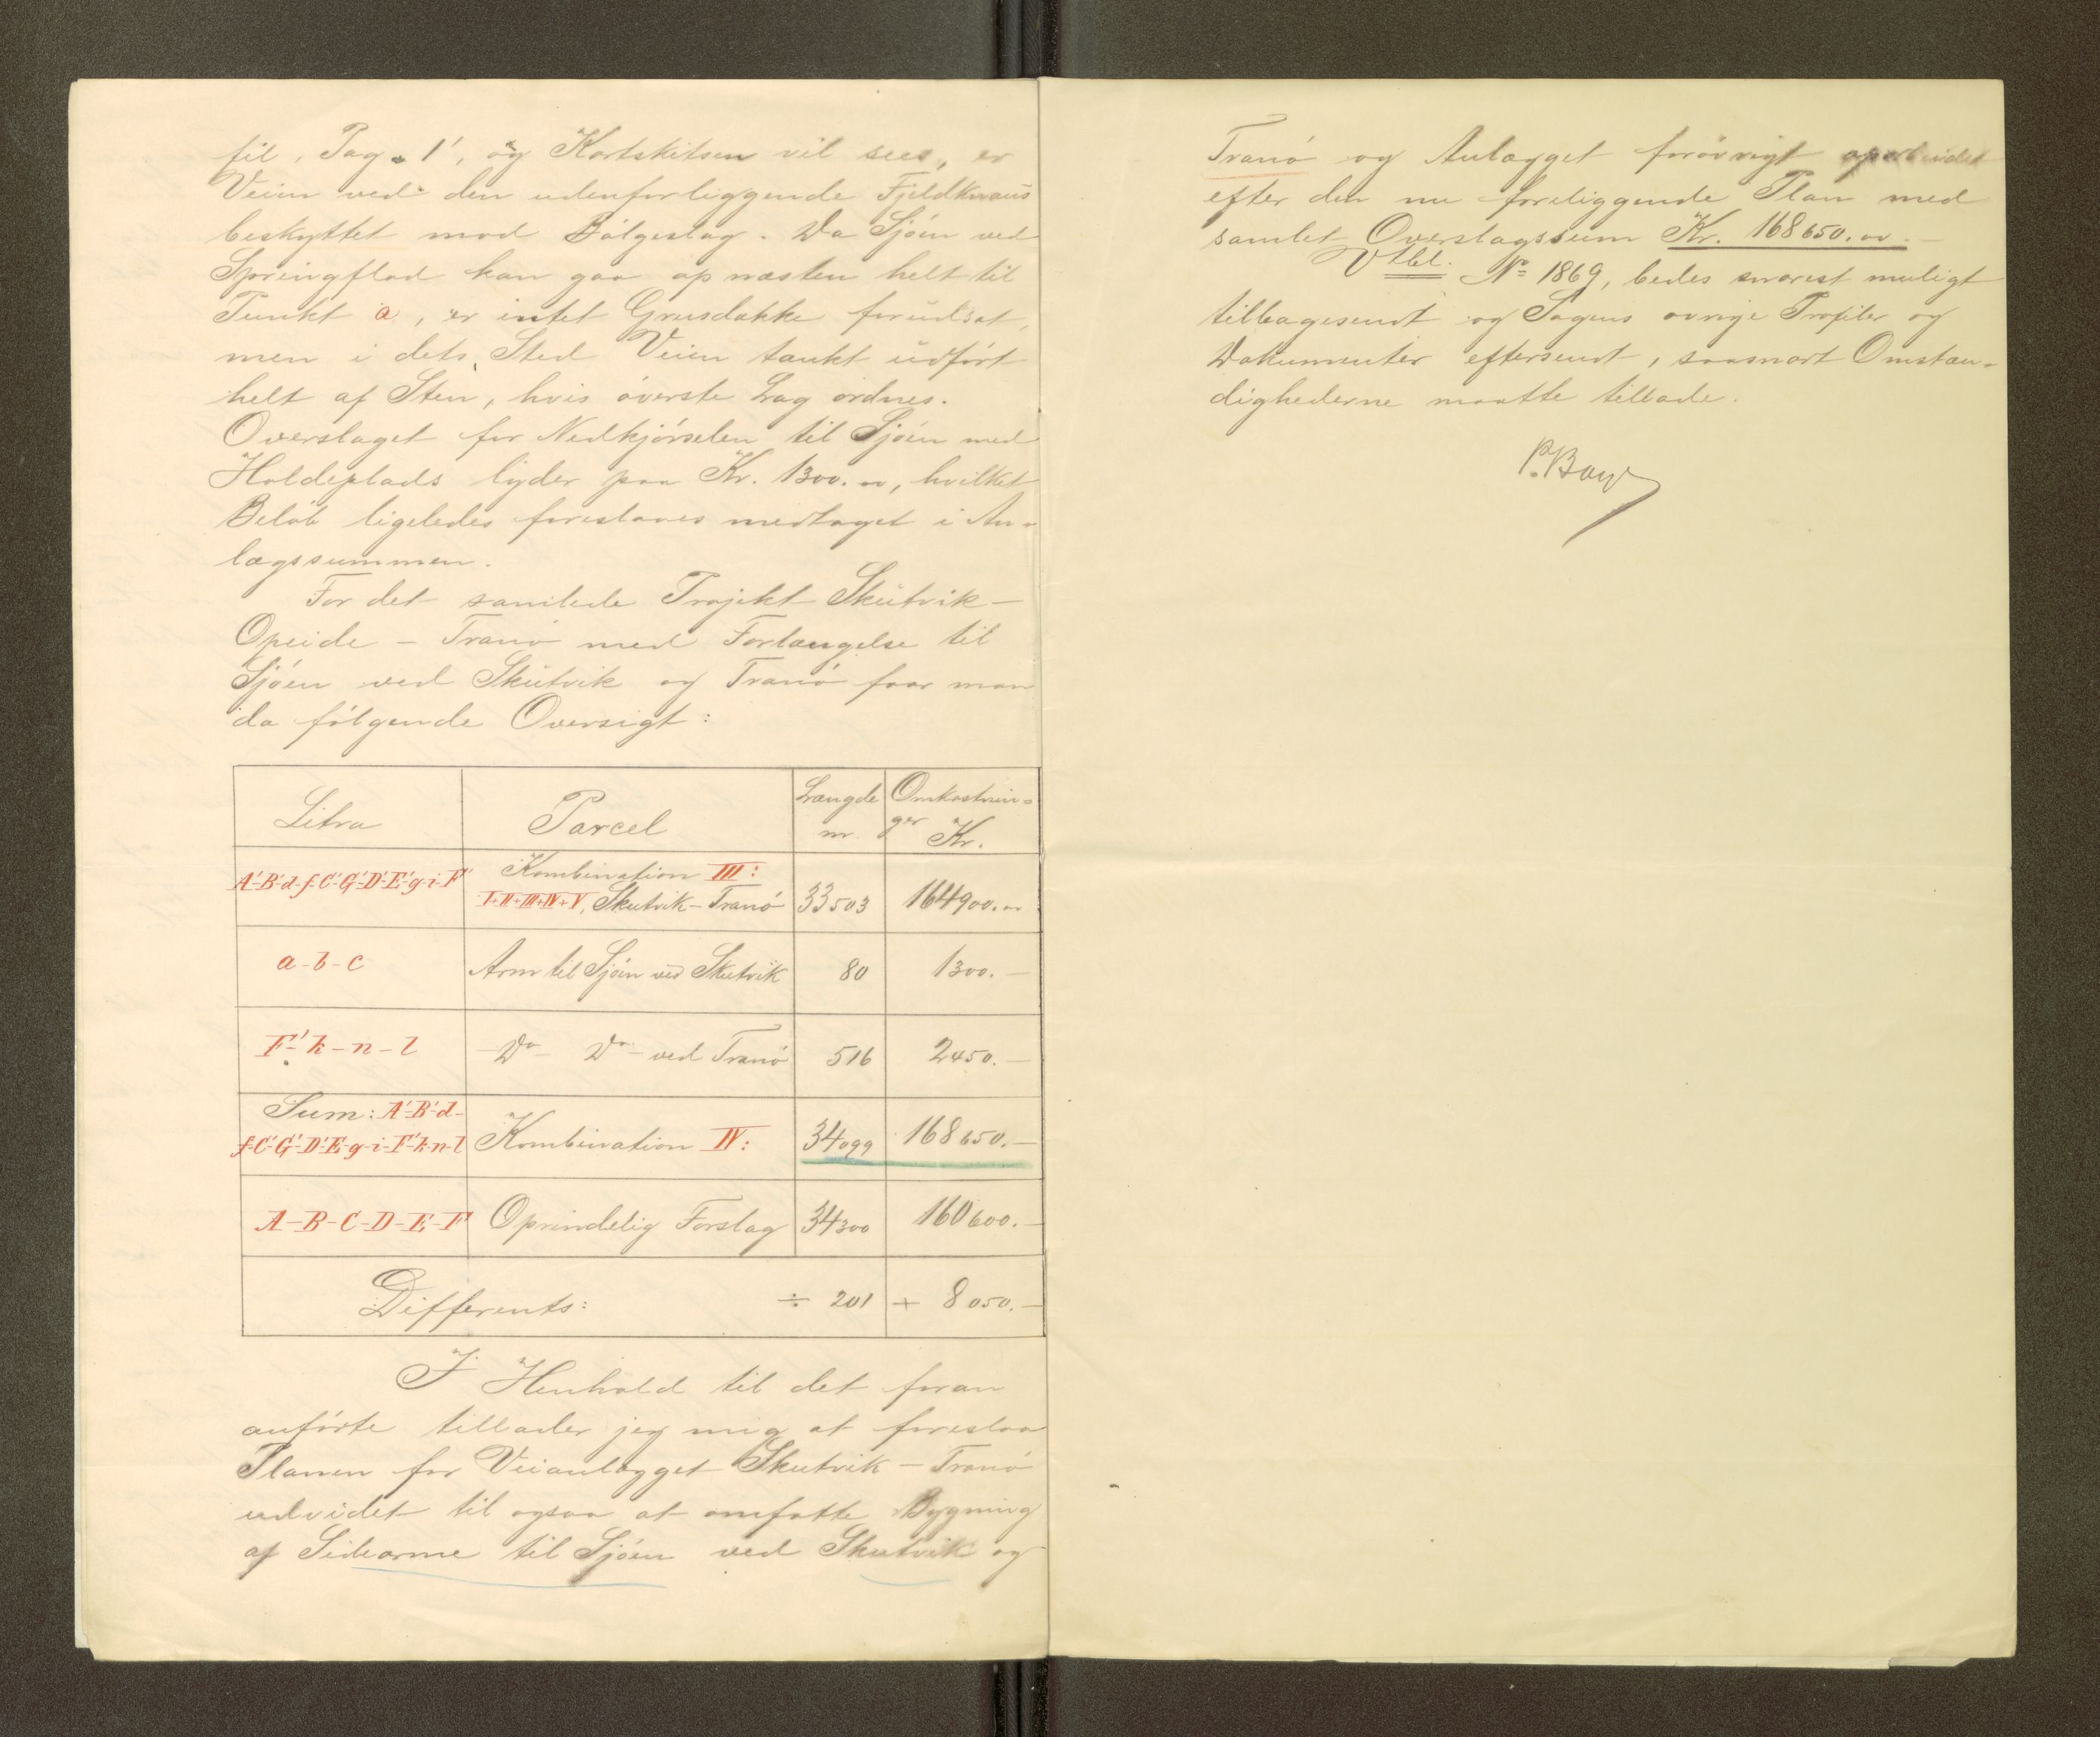 til, Tag. 1', og Kartskitsen vil sees, er
Veien ved den udenforliggende Fjeldknaus
beskyttet mod Bølgeslag. Da Sjøen ved
Springflod kan gaa op næsten helt til
Punkt a, er intet Grusdække forudsat,
men i dets Sted Veien tænkt udført
helt af Sten, hvis øverste Lag ordnes.
Overslaget for Nedkjørselen til Sjøen med
Holdeplads lyder paa Kr. 1300.00, hvilket
Beløb ligeledes foreslaaes medtaget i An-
lægssummen.
For det samlede Projekt Skutvik-
Opeide - Tranø med Forlængelse til
Sjøen ved Skutvik og Tranø faar man
da følgende Oversigt:
Litra Parcel Længde m. Omkostnin-
ger Kr.
A'-B'-d-f-C'-G'-D'-E'-g-i-F' Kombination III:
I+II+III+IV+V, Skutvik-Tranø 33503 164900.00
a-b-c Arm til Sjøen ved Skutvik 80 1300.-
F'-k-n-l -Do- Do- ved Tranø 516 2450.-
Sum: A'-B'-d-
f-C'-G'-D'-E'-g-i-F'-k-n-l Kombination IV: 34099 168650.-
A-B-C-D-E-F Oprindelig Forslag 34300 160600.-
Differents: ÷ 201 + 8050.-
I Henhold til det foran
anførte tillader jeg mig at foreslaa
Planen for Veianlægget Skutvik - Tranø
udvidet til ogsaa at omfatte Bygning
af Sidearme til Sjøen ved Skutvik og
Tranø og Anlægget forøvrigt oparbeidet
efter den nu foreliggende Plan med
samlet Overslagssum Kr. 168650.00.-
Vtbl. No 1869, bedes snarest muligt
tilbagesendt og Sagens øvrige Profiler og
Dokumenter eftersendt, saasnart Omstæn-
dighederne maatte tillade.